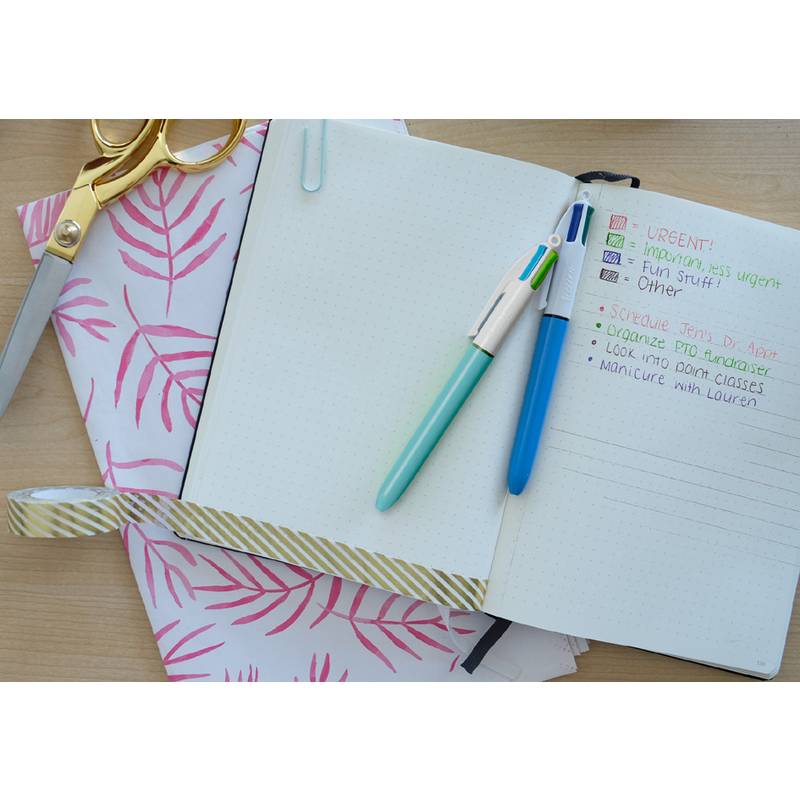 = URGENT!
= Important, less urgent
= Fun Stuff!
= Other
• Schedule Jen's Dr. Appt
• Organize PTO fundraiser
• Look into paint classes
• Manicure with Lauren